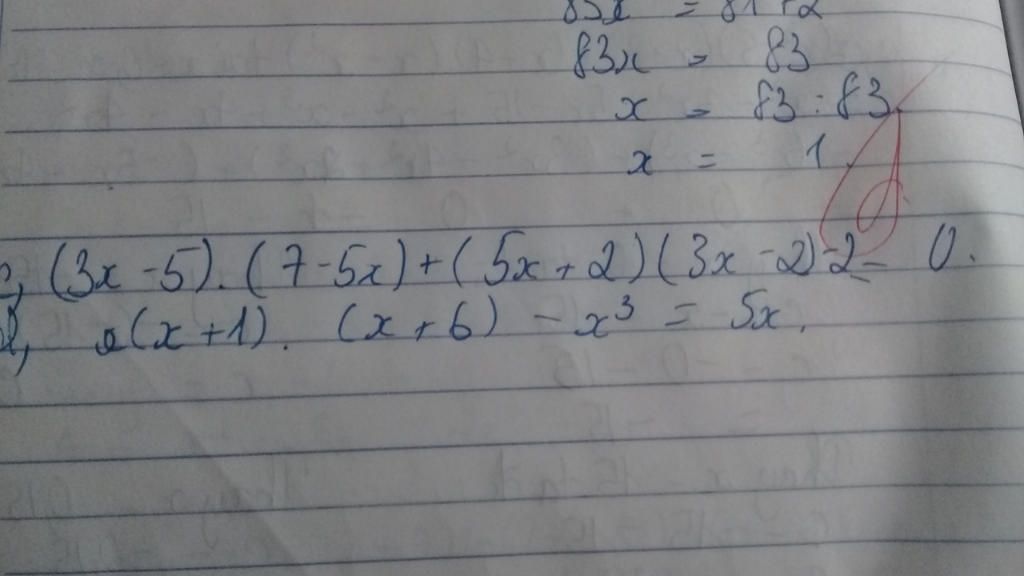 83x = 81+2
83x = 83
x = 83 : 83
x = 1
c, (3x - 5). (7 - 5x) + (5x + 2) (3x - 2) - 2 = 0.
d, (x + 1). (x + 6) - x³ = 5x.